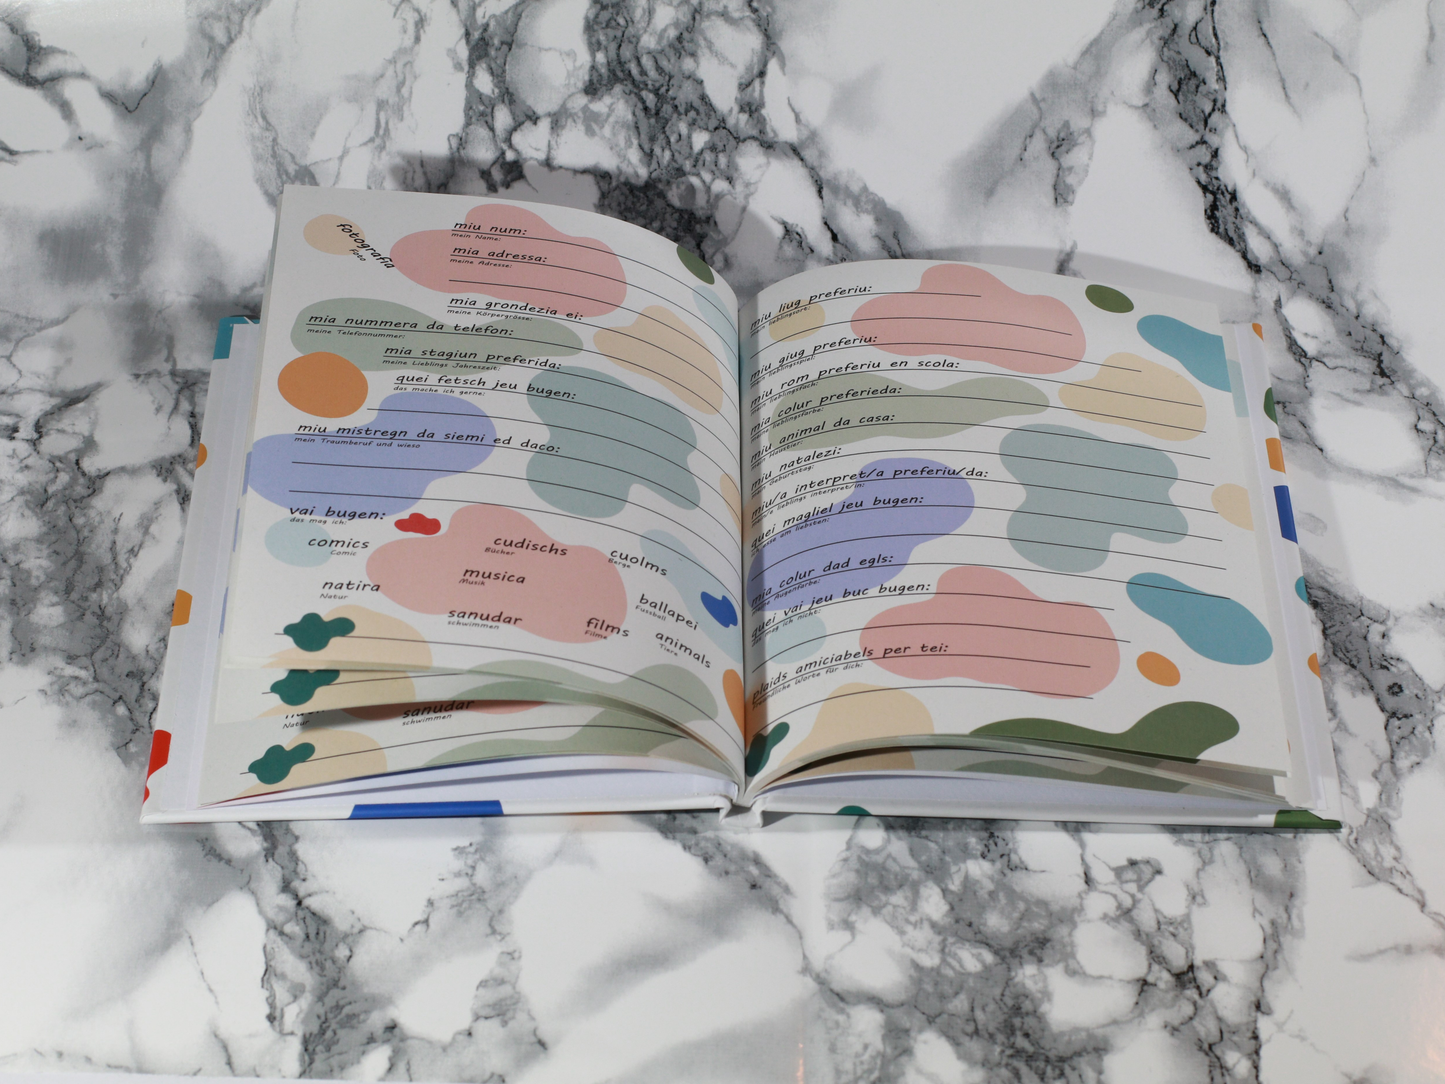 fotografia
Foto
miu num:
mein Name:
mia adressa:
meine Adresse:
mia grondezia ei:
meine Körpergrösse:
mia nummera da telefon:
meine Telefonnummer:
mia stagiun preferida:
meine Lieblings Jahreszeit:
quei fetsch jeu bugen:
das mache ich gerne:
miu mistregn da siemi ed daco:
mein Traumberuf und wieso
vai bugen:
das mag ich:
comics
Comic
cudischs
Bücher
cuolms
Berge
natira
Natur
musica
Musik
ballapei
Fussball
sanudar
schwimmen
films
Filme
animals
Tiere
Natur
sanudar
schwimmen
miu liug preferiu:
mein lieblingsort:
miu giug preferiu:
mein lieblingsspiel:
miu rom preferiu en scola:
mein lieblingsfach:
mia colur preferieda:
meine lieblingsfarbe:
miu animal da casa:
mein Haustier:
miu natalezi:
mein Geburtstag:
miu/a interpret/a preferiu/da:
mein/e lieblings interpret/in:
quei magliel jeu bugen:
esse am liebsten:
mia colur dad egls:
meine Augenfarbe:
quei vai jeu buc bugen:
das mag ich nicht:
plaids amiciabels per tei:
freundliche Worte für dich: